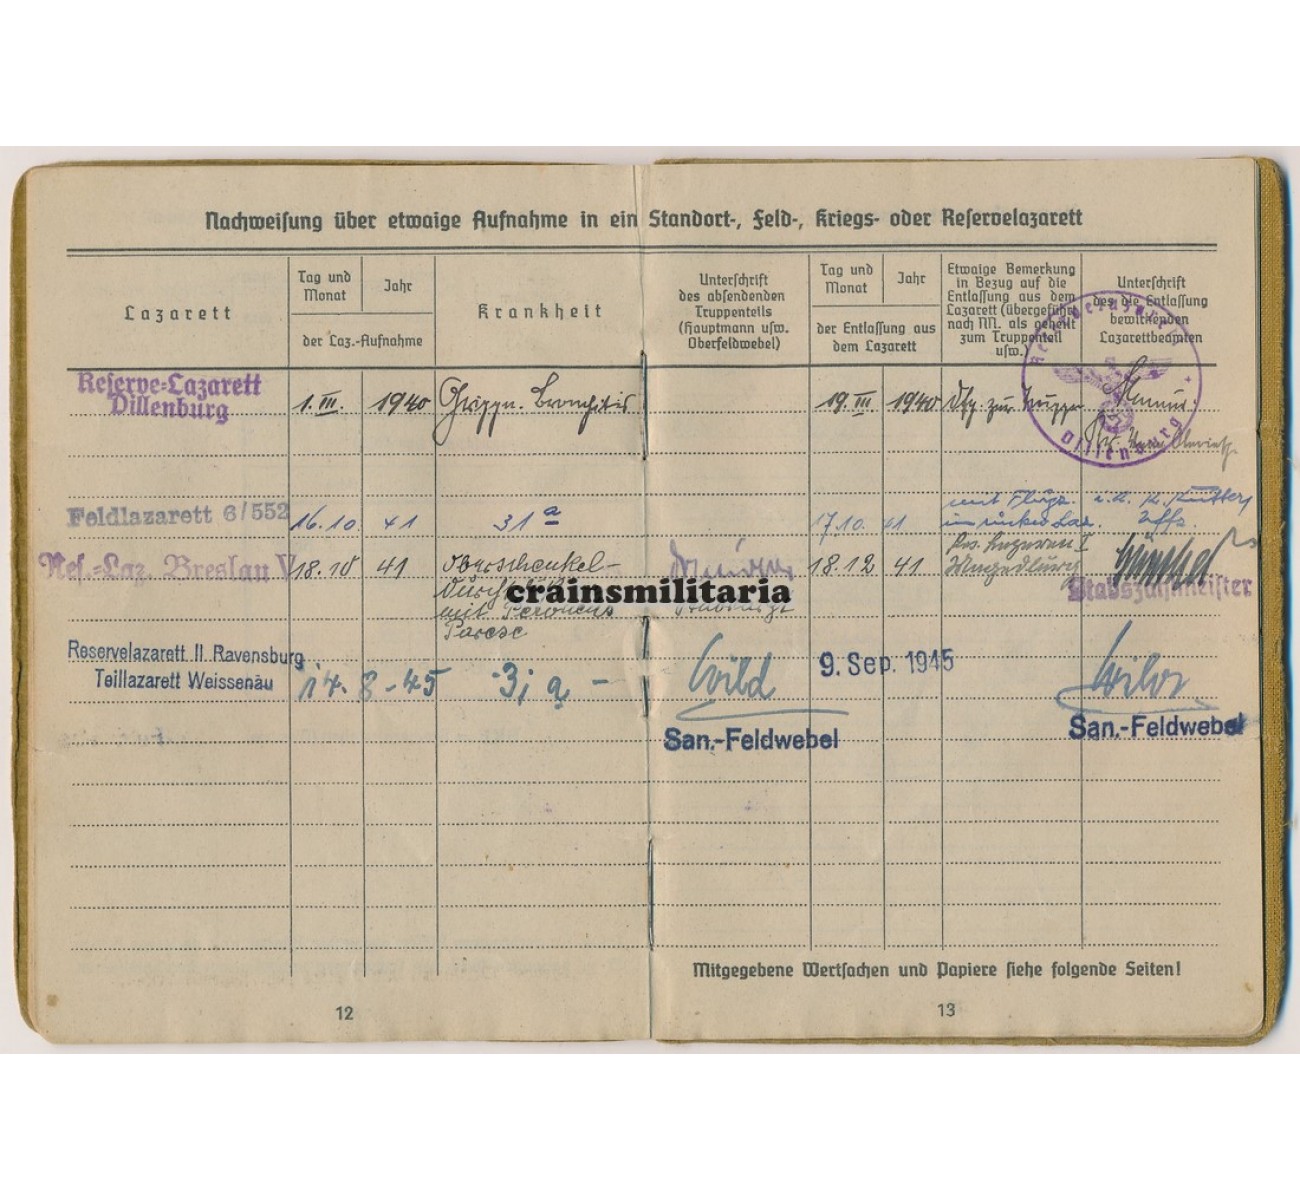 Nachweisung über etwaige Aufnahme in ein Standort-, Feld-, Kriegs- oder Reservelazarett
Lazarett
Tag und
Monat
Jahr
der Laz.-Aufnahme
Krankheit
Unterschrift
des absendenden
Truppenteils
(Hauptmann usw.
Oberfeldwebel)
Tag und
Monat
Jahr
der Entlassung aus
dem Lazarett
Etwaige Bemerkung
in Bezug auf die
Entlassung aus dem
Lazarett (übergeführt
nach NN. als geheilt
zum Truppenteil
usw.)
Unterschrift
des die Entlassung
bewirkenden
Lazarettbeamten
Reserve-Lazarett
Dillenburg
1. III. 1940
Bronchitis
19. III 1940
zur Truppe
Reservelazarett
Dillenburg
Feldlazarett 6/552
16.10. 41
31 a
17.10. 41
mit Flugz.
Uffz.
Res.-Laz. Breslau V
18.10 41
Oberschenkel-
mit Peroneus
Parese
18.12 41
Stabszahlmeister
crainsmilitaria
Reservelazarett II Ravensburg
Teillazarett Weissenau
14. 8 - 45
Wild
San.-Feldwebel
9. Sep. 1945
San.-Feldwebel
Mitgegebene Wertsachen und Papiere siehe folgende Seiten!
12
13